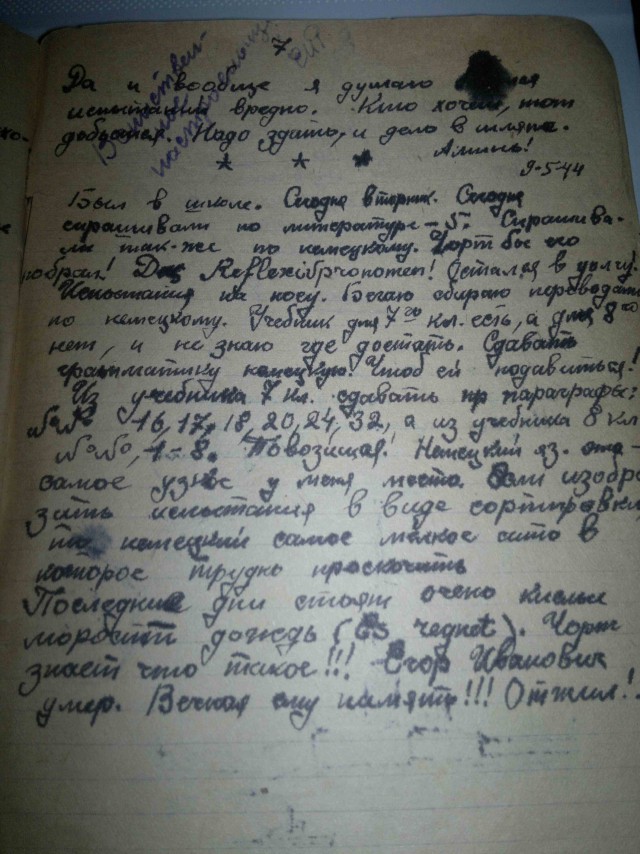 7
Да и вообще я думаю
испытания вредно. Кто хочет, тот
добьется. Надо здать, и дело в шляпе.
* * *
Аминь!
9-5-44
Был в школе. Сегодня вторник. Сегодня
спрашивали по литературе – 5. Спрашива-
ли так-же по немецкому. Чорт бы его
побрал! Das Остался в долгу.
Испытания на носу. Бегаю сбираю переводы
по немецкому. Учебник для 7го кл. есть, а для 8го
нет, и не знаю где достать. Сдавать
грамматику немецкую! Чтоб ей подавиться!
Из учебника 7 кл. сдавать пр параграфы:
№№ 16, 17, 18, 20, 24, 32, а из учебника 8 кл
№№, 1-8. Немецкий яз. это-
самое узкое у меня место. Если изобра
зить испытания в виде сортировки
то немецкий самое мелкое сито в
которое трудно проскочить
Последние дни стоят очень кислые
моросит дождь (Es regnet). Чорт
знает что такое!!! Егор Иванович
умер. Вечная ему память!!! Отжил!